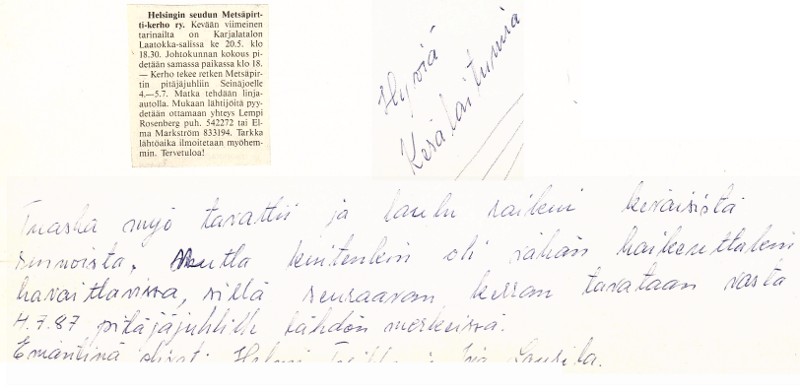 Helsingin seudun Metsäpirt-
ti-kerho ry. Kevään viimeinen
tarinailta on Karjalatalon
Laatokka-salissa ke 20.5. klo
18.30. Johtokunnan kokous pi-
detään samassa paikassa klo 18.
— Kerho tekee retken Metsäpir-
tin pitäjäjuhliin Seinäjoelle
4.—5.7. Matka tehdään linja-
autolla. Mukaan lähtijöitä pyy-
detään ottamaan yhteys Lempi
Rosenberg puh. 542272 tai El-
ma Markström 833194. Tarkka
lähtöaika ilmoitetaan myöhem-
min. Tervetuloa!
Hyviä
Kesälaitumia
Tuaska myö tavattii ja laulu raikui keväisistä
rinnoista. Mutta kuitenkin oli vähän haikeuttakin
havaittavissa, sillä seuraavan kerran tavataan vasta
4.7.87 pitäjäjuhlille lähdön merkeissä.
Emäntinä olivat: